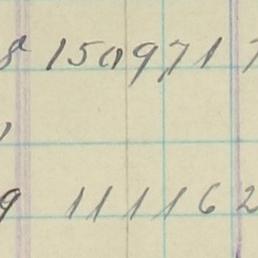 8 150971 7
9 111162